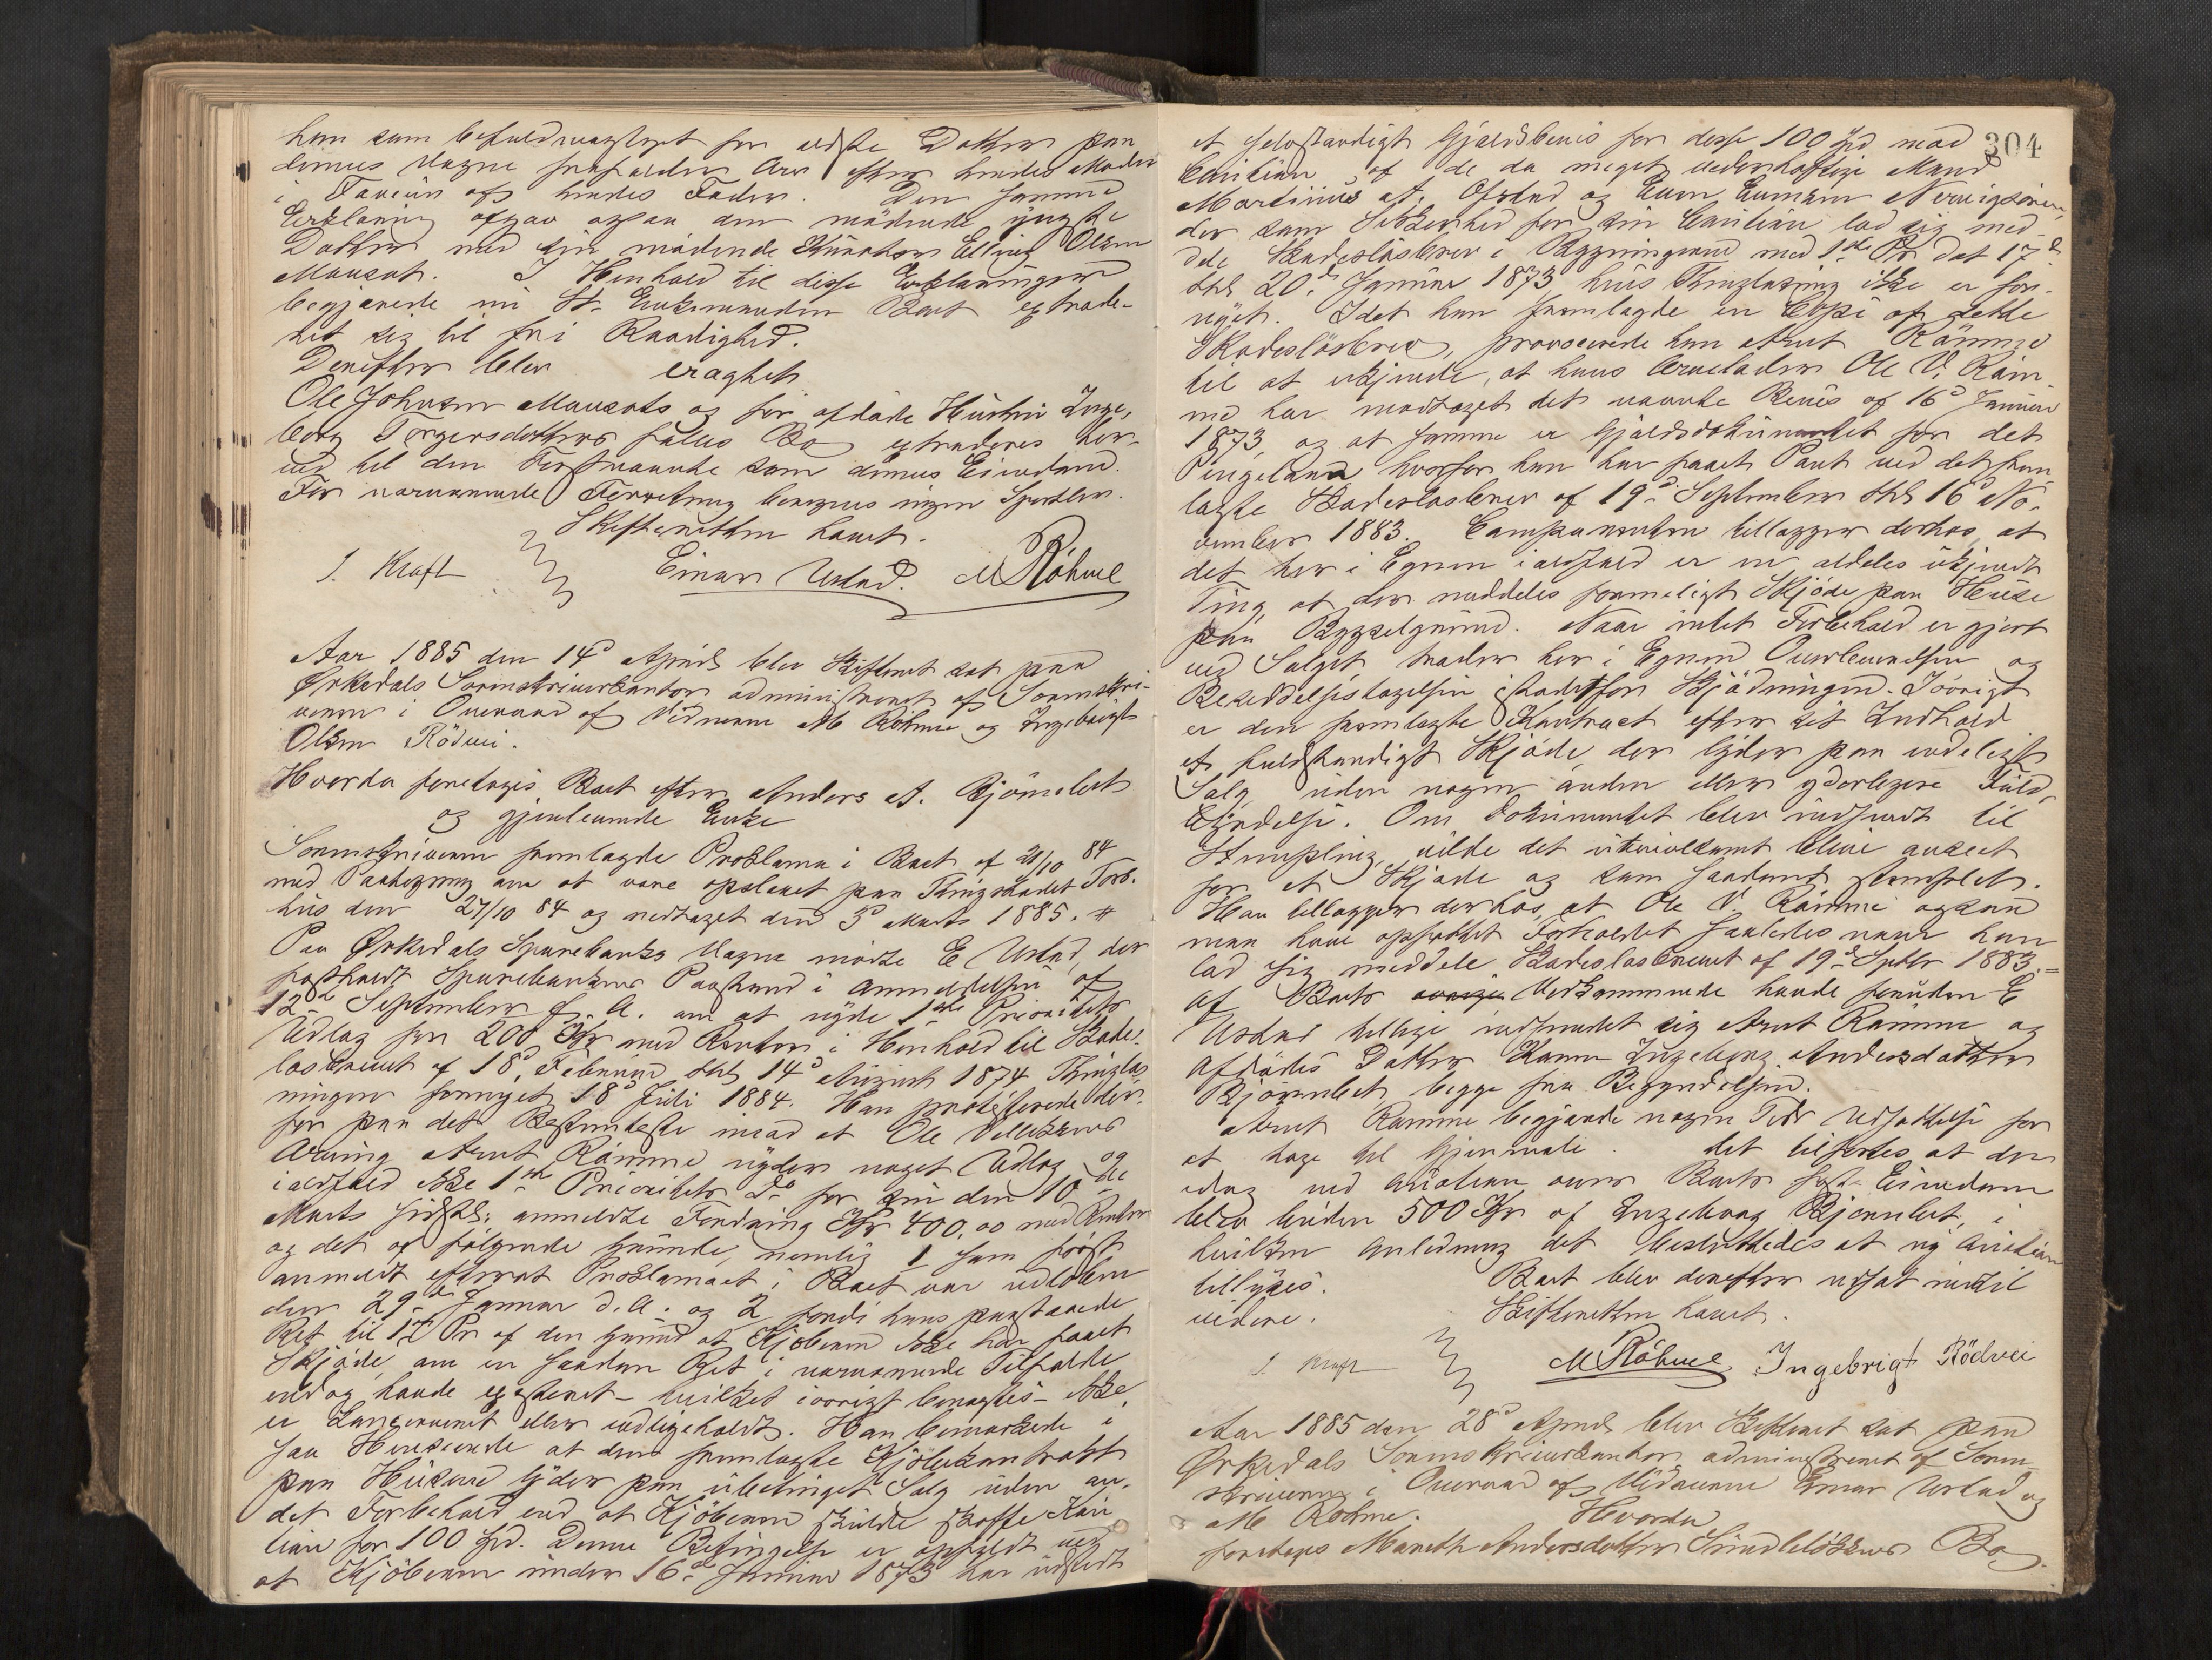 han som befuldmægtiget for ældste Datter paa
dennes Vegne frafalder Arv efter hendes Moder
i Faveur af hendes Fader. Den samme
Erklæring afgav ogsaa den mødende yngste
Datter med sin mødende Kurator Elling Olsen
Mausat. I Henhold til disse Erklæringer
begjærede nu St. Enkemanden Boet extrade-
ret sig til fri Raadighed.
Derefter blev eragtet
Ole Johnsen Mausets og før afdøde Hustru Inge-
borg Torgersdatters fælles Bo extraderes her-
ved til den Førstnævnte som dennes Eiendom.
For nærværende Forretning beregnes ingen Sportler.
Skifteretten hævet.
J. Kraft Einar Ustad. M Röhme
Aar 1885 den 14d April blev Skifteret sat paa
Ørkedals Sorenskriverkontor administreret af Sorenskri-
veren i Overvær af Vidnerne M Röhme og Ingebrigt
Olsen Rödvei.
Hvorda foretoges Boet efter Anders A. Bjørnebet
og gjenlevende Enke
Sorenskriveren fremlagde Proklama i Boet af 21/10 84
med Paategning om at være opslaaet paa Thingstedet Forb.
hus den 27/10 84 og nedtaget den 3d Marts 1885. #
Paa Ørkedals Sparebanks Vegne mødte E Ustad, der
fastholdt Sparebankens Paastand i Anmeldelsen af
12te September f. A. om at nyde 1ste Prioritets
Udlæg for 200 Kr med Renter i Henhold til Skades-
løsbrevet af 18d Februar thl 14d August 1874 Thinglæs
ningen fornyet 18d Juli 1884. Han protesterede der-
for paa det Bestemteste imod at Ole Villeksens
Arving Arnt Rømme nyder noget Udlæg og
ialdfald ikke 1ste Prioritets Do for sin den 10de
Marts sidstl. anmeldte Fordring Kr 400,00 med Renter
og det af følgende Grunde, nemlig 1 som først
anmeldt efterat Proklamaet i Boet var udløben
den 29de Januar d. A. og 2 fordi hans paastaaede
Ret til 1ste Pr af den Grund at Kjøberen ikke har faaet
Skjøde, om en saadan Ret i nærværende Tilfælde
endog havde existeret – hvilket iøvrigt benegtes – ikke
er conserveret eller vedligeholdt. Han bemærkede i
saa Henseende at den fremlagte Kjøbekontrakt
paa Husene lyder paa ubetinget Salg uden an-
det Forbehold end at Kjøberen skulde skaffe Kau
tion for 100 Spd. Denne Betingelse er opfyldt ved
at Kjøberen under 16de Januar 1873 har udstedt
304
et selvstændigt Gjældsbevis for disse 100 Spd med
Caution af de da meget vederhæftige Mænd
Martinus A. Ofstad og Even Evensen Nervigsøren,
der som Sikkerhed for sin Caution lod sig med-
dele Skadesløsbrev i Bygningerne med 1ste Pr dat 17d
thl 20d Januar 1873 hvis Thinglæsning ikke er for-
nyet. Idet han fremlagde en Copi af dette
Skadesløsbrev, provocerede han Arnt Rømme
til at erkjende, at hans Arvelader Ole V. Røm-
me har modtaget det nævnte Bevis af 16d Januar
1873 og at samme er Gjældsdokumentet for det
Pengelaan hvorfor han har faaet Pant ved det frem
lagte Skadesløsbrev af 19d September thl 16d No-
vember 1883. Comparenten tillægger derhos at
det her i Egnen ialdfald er en aldeles ukjendt
Ting at der meddeles formeligt Skjøde paa Huse
paa Bygselgrund. Naar intet Forbehold er gjort
ved Salget, træder her i Egnen Overleverelsen og
Besiddelsestagelsen istedetfor Skjødningen. Iøvrigt
er den fremlagte Kontract efter sit Indhold
et fuldstændigt Skjøde, der lyder paa endeligt
Salg uden nogen anden eller yderligere Fuld-
byrdelse. Om Dokumentet blev indsendt til
Stempling, vilde det utvivlsomt blive anseet
for et Skjøde og som saadant stemplet.
Han tillægger derhos, at Ole V. Rømme ogsaa
maa have opfattet Forholdet saaledes naar han
lod sig meddele Skadesløsbrevet af 19d Septbr 1883. =
Af Boets Vedkommende havde foruden E
Ustad tillige indfundet sig Arnt Rømme og
Afdødes Datter Karen Ingeborg Andersdatter
Bjørnebet begge fra Begyndelsen.
Arnt Rømme begjærede nogen Tids Udsættelse for
at tage til Gjenmæle. Det tilførtes at der
idag ved Auktion over Boets faste Eiendom
blev buden 500 Kr af Ingeborg Bjørnebet, i
hvilken Anledning det besluttedes at ny Auktion
tillyses. Boet blev derefter udsat indtil
videre. Skifteretten hævet.
J. Kraft M Röhme Ingebrigt Rödvei
Aar 1885 den 28d April blev Skifteret sat paa
Ørkedals Sorenskriverkontor administreret af Soren-
skriveren i Overvær af Vidnerne Einar Ustad og
M Röhme. Hvorda
foretoges Marith Andersdatter Grindeløkkens Bo.